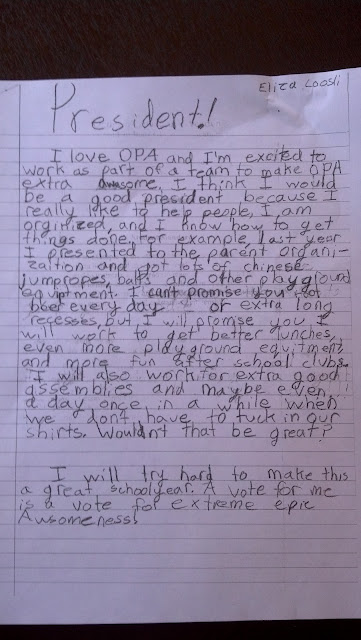 Eliza Loosli
President!
I love OPA and I'm excited to
work as part of a team to make OPA
extra awsome. I think I would
be a good president because I
really like to help people, I am
orginized, and I know how to get
things done. For example, last year
I presented to the parent organi-
zaition and got lots of chinese
jumpropes, balls and other playground
equipment. I cant promise you root
beer every day or extra long
recesses, but I will promise you I
will work to get better lunches,
even more playground equitment,
and more fun after school clubs.
I will also work for extra good
assemblies and maybe even
a day once in a while when
we dont have to tuck in our
shirts. Wouldn't that be great?
I will try hard to make this
a great schoolyear. A vote for me
is a vote for extreme epic
Awsomeness!